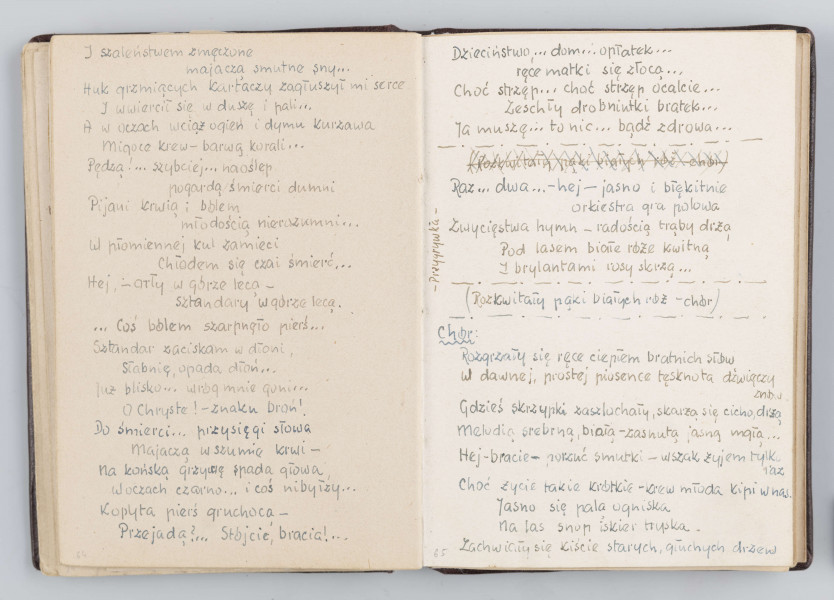 I szaleństwem zmęczone
majaczą smutne sny...
Huk grzmiących kartaczy zagłuszył mi serce
I wwiercił się w duszę i pali...
A w oczach wciąż ogień i dymu kurzawa
Migoce krew – barwą korali...
Pędzą!... szybciej... naoślep
pogardą śmierci dumni
Pijani krwią i bólem
młodością nierozumni...
W płomiennej kul zamieci
Chłodem się czai śmierć...
Hej, – orły w górze lecą –
sztandary w górze lecą.
... Coś bólem szarpnęło pierś...
Sztandar zaciskam w dłoni,
Słabnię, opada dłoń...
Już blisko... wróg mnie goni...
O Chryste! – znaku broń!
Do śmierci... przysięgi słowa
Majaczą w szumie krwi –
Na końską grzywę spada głowa
W oczach czarno... i coś niby łzy...
Kopyta pierś gruchocą –
Przejadą?... Stójcie, bracia!...
Dzieciństwo... dom... opłatek...
ręce matki się złocą...
Choć strzęp... choć strzęp ocalcie...
Zeschły drobniutki bratek...
Ja muszę... to nic... bądź zdrowa...
(Rozkwitały pąki białych róż – chór)
Raz... dwa... – hej – jasno i błękitnie
orkiestra gra polowa
Zwycięstwa hymn – radością trąby drżą
Pod lasem białe róże kwitną
I brylantami rosy skrzą...
– Przygrywka –
(Rozkwitały pąki białych róż – chór)
Chór:
Rozgrzały się ręce ciepłem bratnich słów
W dawnej, prostej piosence tęsknota dźwięczy
znów.
Gdzieś skrzypki zaszlochały, skarżą się cicho, drżą
Melodią srebrną, białą – zasnutą jasną mgłą...
Hej – bracie – porzuć smutki – wszak żyjem tylko
raz
Choć życie takie krótkie – krew młoda kipi w nas.
Jasno się palą ogniska
Na las snop iskier tryska.
Zachwiały się kiście starych, głuchych drzew
65